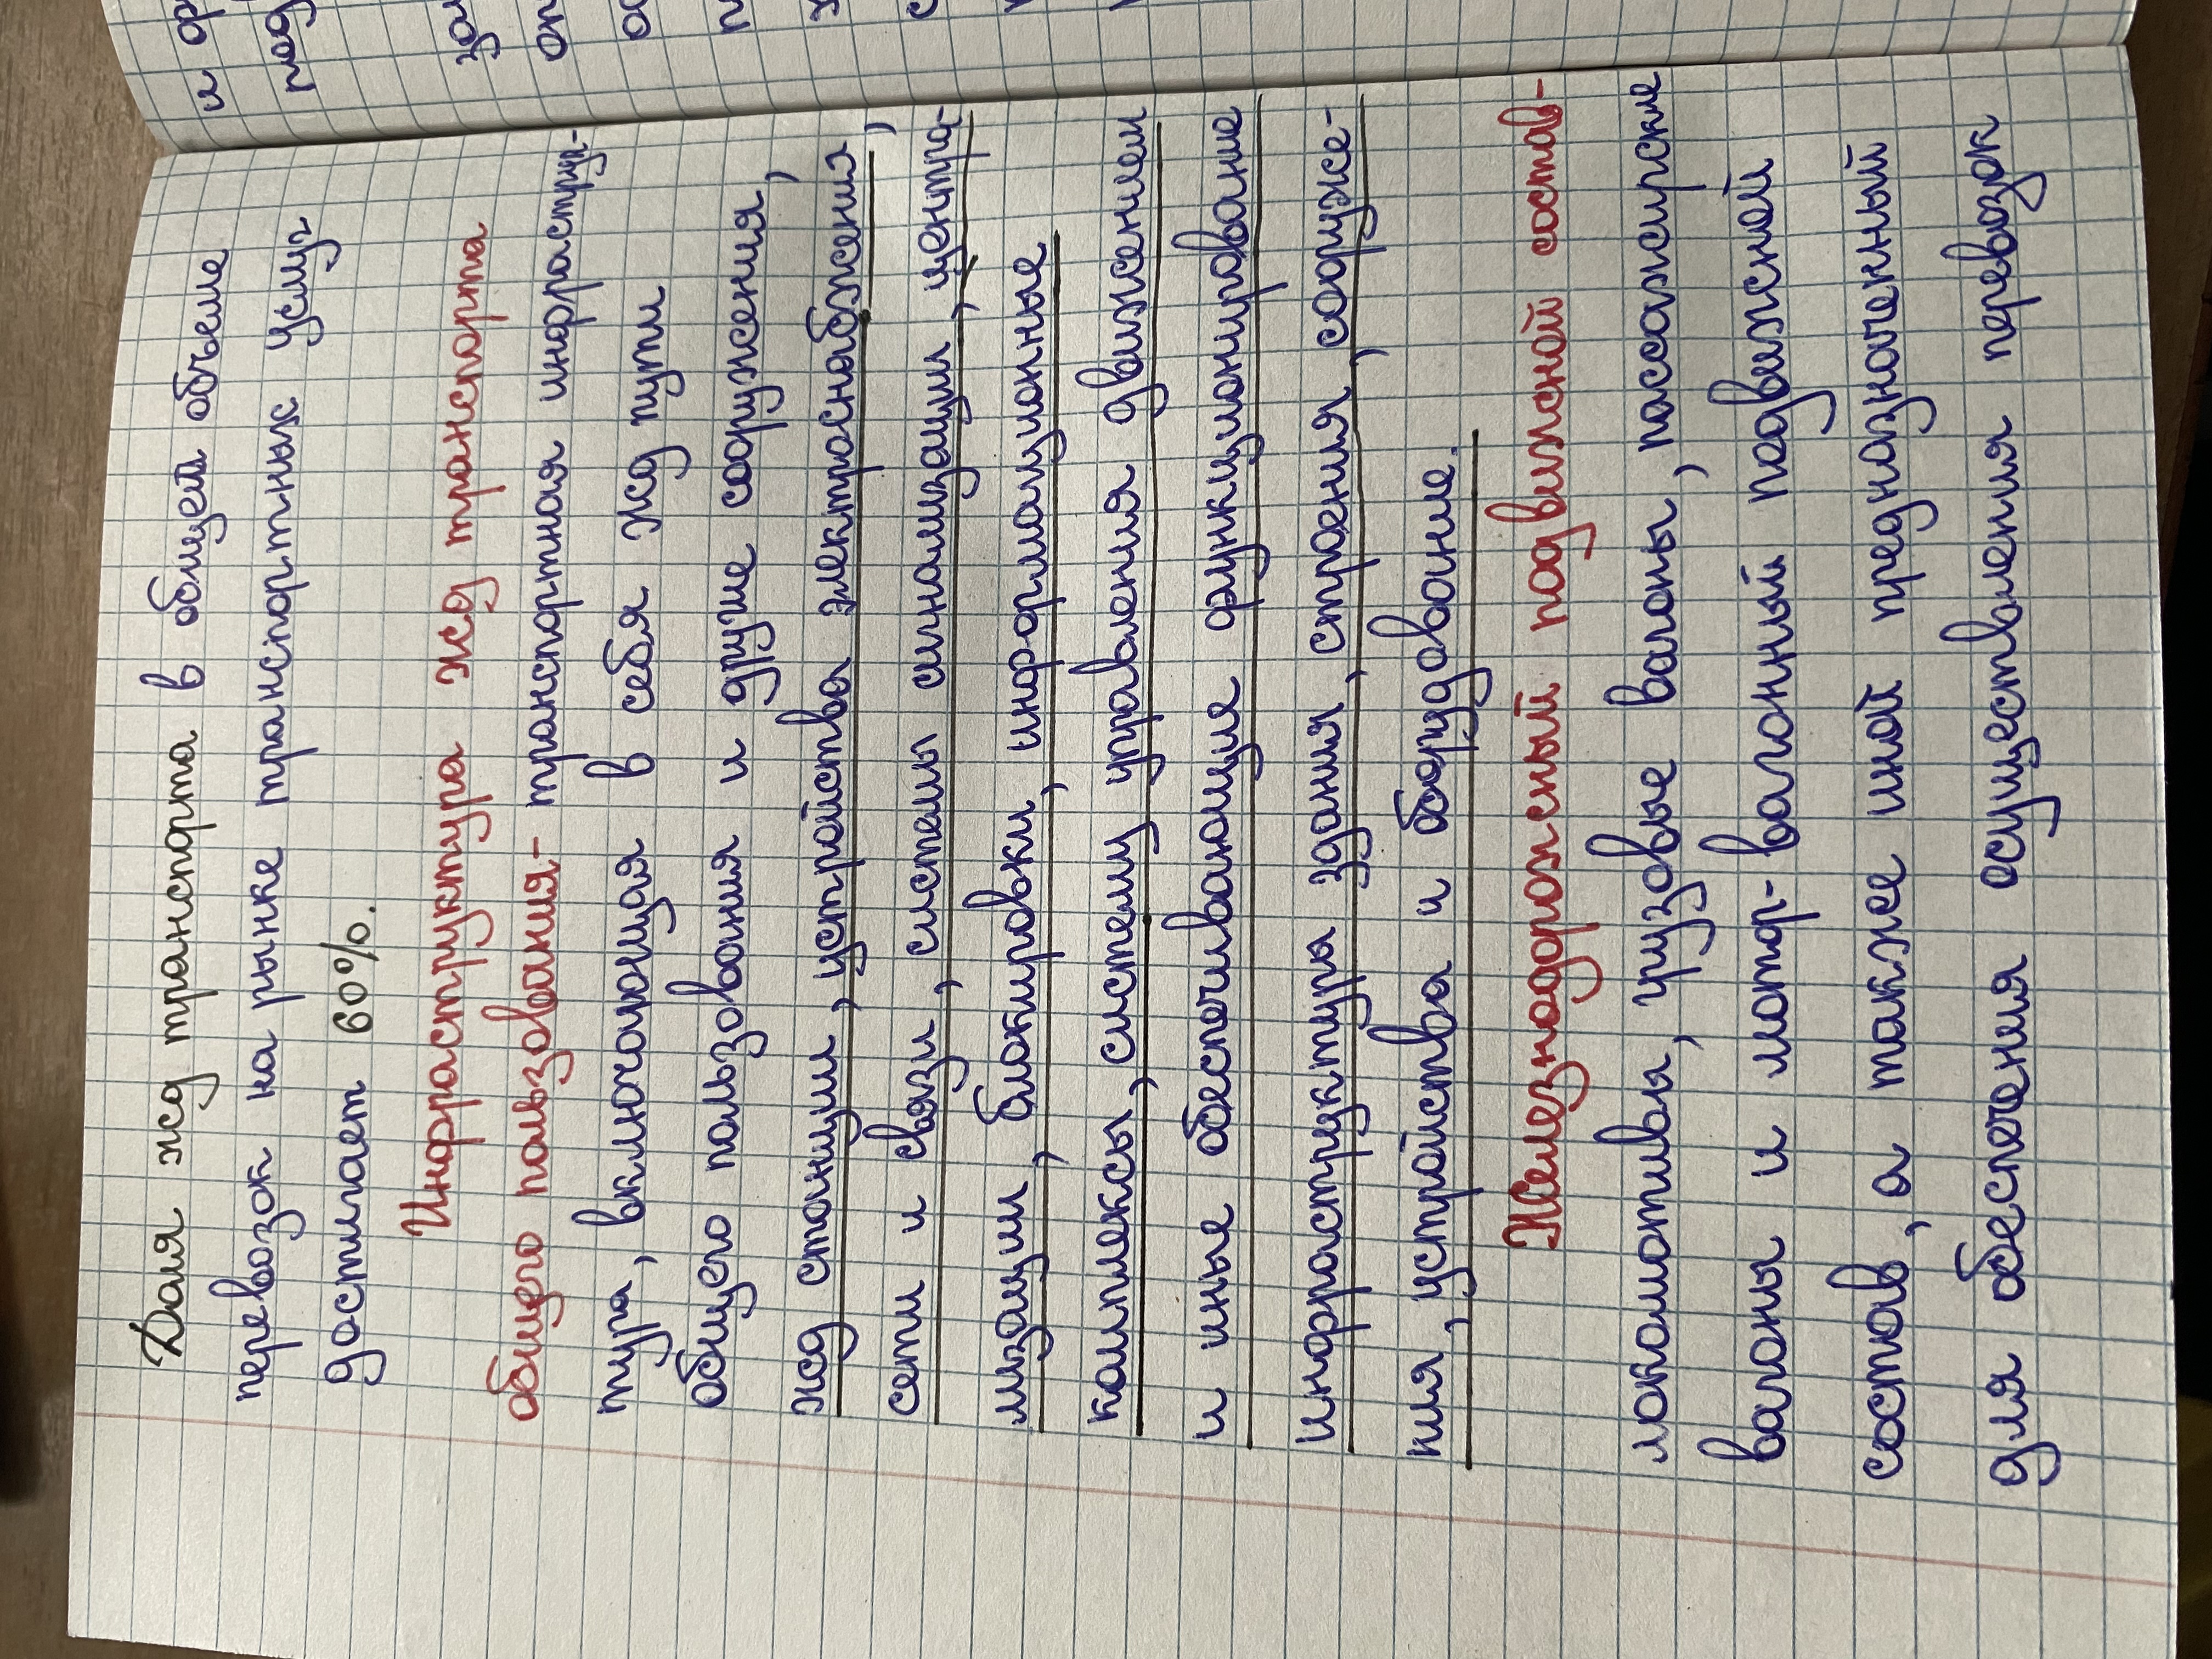 Доля жд транспорта в общей объеме
перевозок на рынке транспортных услуг
достигает 60%.
Инфраструктура жд транспорта
общего пользования- транспортная инфраструк-
тура, включающая в себя жд пути
общего пользования и другие сооружения,
жд станции, устройства электроснабжения,
сети и связи, системы сигнализации, центра-
лизации, блокировки, информационные
комплексы, систему управления движением
и иные обеспечивающие функционирование
инфраструктуры здания, строения, сооруже-
ния, устройства и оборудование.
Железнодорожный подвижной состав-
локомотивы, грузовые вагоны, пассажирские
вагоны и мотор-вагонный подвижной
состав, а также иной предназначенный
для обеспечения осуществления перевозок